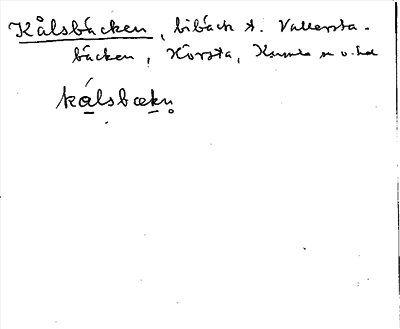 Kålsbäcken, bibäck t. Vallersta-
bäcken, Korsta, Kumla sn o. hd
kålsbækn̥